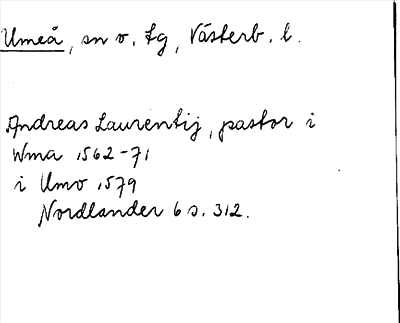 Umeå, sn o. lg, Västerb. l.
Andreas Laurentij, pastor i
Wma 1562-71
i Umo 1579
Nordlander 6 s. 312.